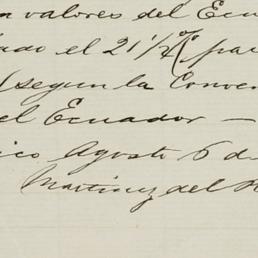 n valores del Ecu
ado el 21 1/2 % pa
(segun la Conve
el Ecuador —
ico Agosto 6 d
Martinez del R